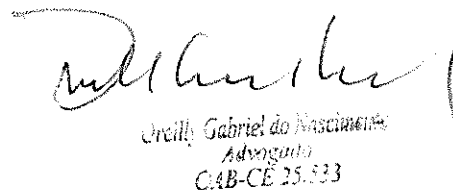 Oreilly Gabriel do Nascimento
Advogado
OAB-CE 25.533